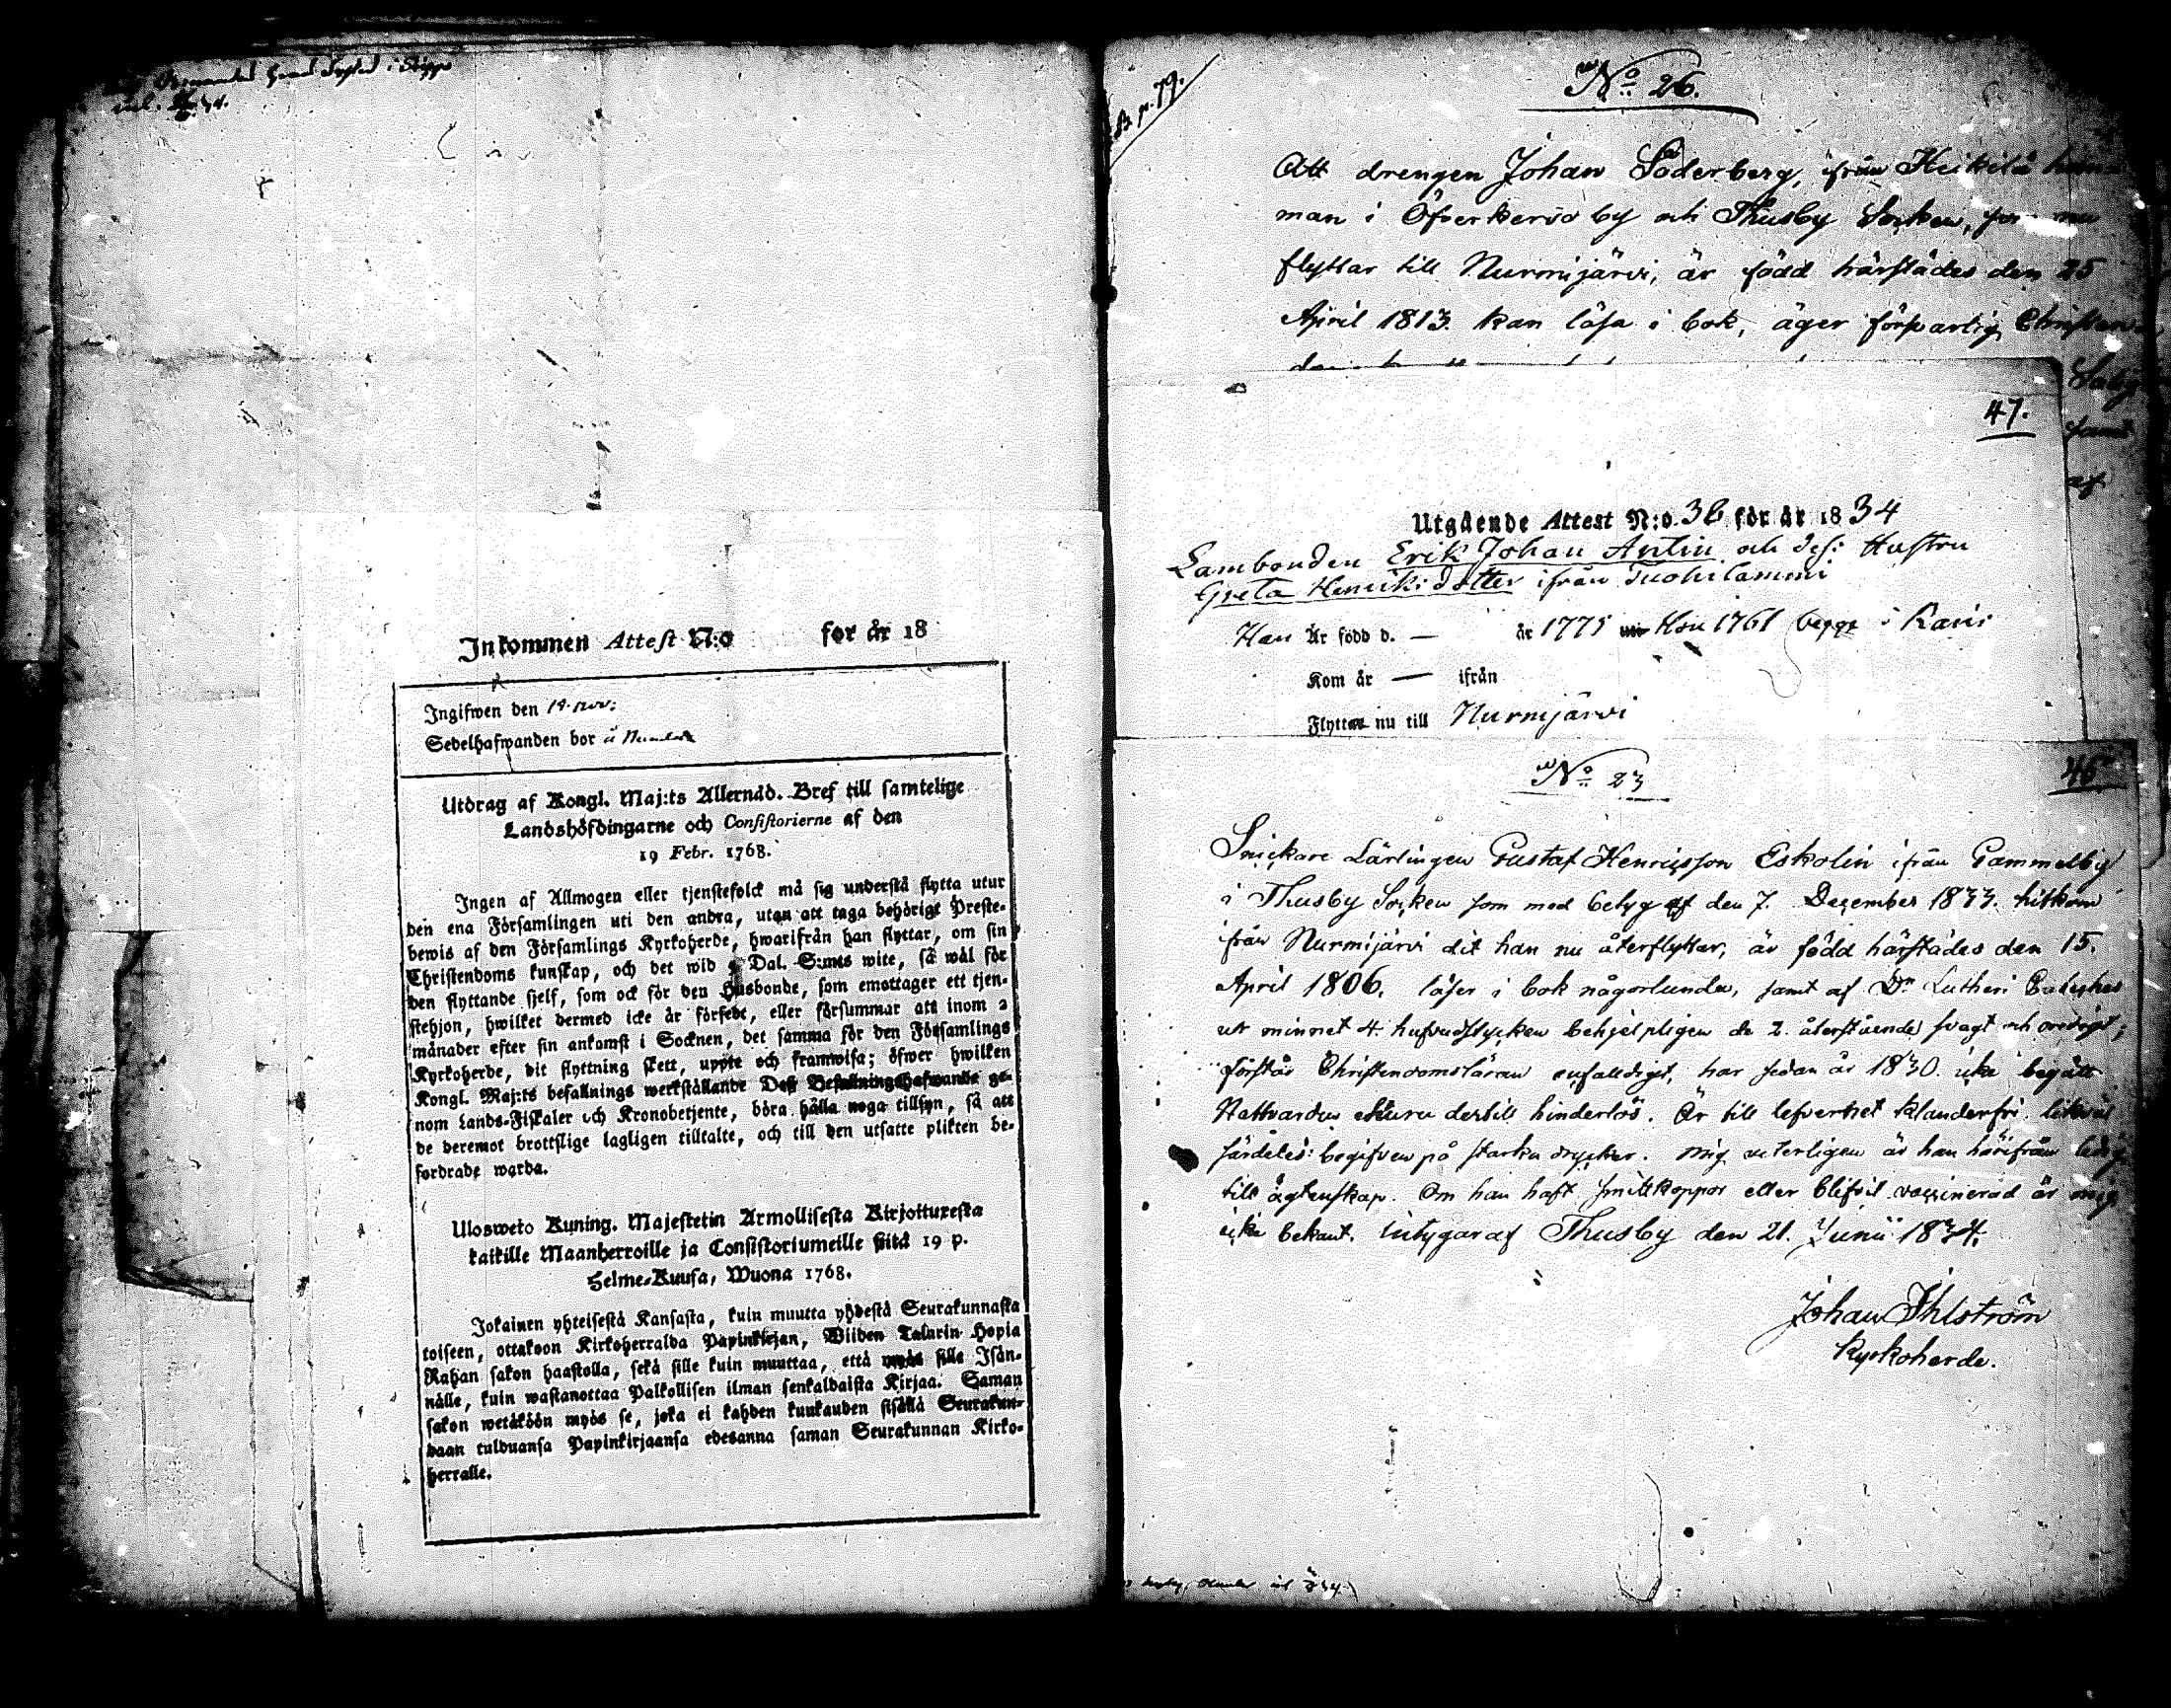 i Skippo
Inkommen Attest N:o för år 18
Ingifwen den 14. nov:
Sedelhafwanden bor å
Utdrag af Kongl. Maj:ts Allernåd. Bref till samtelige
Landshöfdingarne och Consistorierne af den
19 Febr. 1768.
Ingen af Allmogen eller tjenstefolck må sig understå flytta utur
den ena Församlingen uti den andra, utan att taga behörigt Preste-
bewis af den Församlings Kyrkoherde, hwarifrån han flyttar, om sin
Christendoms kunskap, och det wid 5 Dal. S:mts wite, så wål för
den flyttande sjelf, som ock för den Husbonde, som emottager ett tjen-
stehjon, hwilket dermed icke är försedt, eller försummar att inom 2
månader efter sin ankomst i Socknen, det samma för den Församlings
Kyrkoherde, dit flyttning skett, uppte och framwisa; öfwer hwilken
Kongl. Maj:ts befallnings werkställande Dess Befallningshafwande ge-
nom Lands-Fiskaler och Kronobetjente, böra hålla noga tillsyn, så att
de deremot brottslige lagligen tilltalte, och till den utsatte plikten be-
fordrade warda.
Ulosweto Kuning. Majestetin Armollisesta Kirjoituxesta
kaikille Maanherroille ja Consistoriumeille siitä 19 p.
Helme-Kuusa, Wuona 1768.
Jokainen yhteisestä Kansasta, kuin muutta yhdestä Seurakunnasta
toiseen, ottakoon Kirkoherralda Papinkirjan, Wiiden Talarin Hopia
Rahan sakon haastolla, sekä sille kuin muuttaa, että myös sille Isän-
nälle, kuin wastanottaa Palkollisen ilman senkaldaista Kirjaa. Saman
sakon wetäköön myös se, joka ei kahden kuukauden sisällä Seurakun-
daan tulduansa Papinkirjaansa edesanna saman Seurakunnan Kirko-
herralle.
B. p. 79.
No 26.
Att drengen Johan Söderberg, ifrån Heikilä
man i Öfverkervo by och Thusby Socken, som nu
flyttar till Nurmijärvi, är född härstädes den 25
April 1813. kan läsa i bok, äger försvarlig Christen
47.
samt
af
Utgående Attest N:o 36 för år 1834
Lambonden Erik Johan Antin och des: Hustru
Greta Henriksdotter ifrån Tuohilammi
Han Är född d. — år 1775 Hon 1761 begge i Karis
Kom år — ifrån
Flyttar nu till Nurmijärvi
No 23
46
Snickare Lärlingen Gustaf Henricsson Eskolin ifrån Gammelby
i Thusby Socken som med betyg af den 7. December 1833. hitkom
ifrån Nurmijärvi dit han nu återflyttar, är född härstädes den 15.
April 1806. läser i bok någorlunda, samt af Dr Lutheri Cateches
ur minnet 4. hufvudstycken behjelpligen de 2. återstående svagt och oredigt;
förstår Christendomsläran enfaldigt, har sedan år 1830. icke begått
Nattvarden ehuru dertill hinderlös. Är till lefvernet klanderfri likväl
särdeles begifven på starka drycker. Mig veterligen är han härifrån ledig
till ägtenskap. Om han haft smittkoppor eller blifvit vaccinerad är mig
icke bekant. intygar af Thusby den 21. Junii 1834.
Johan Ihlström
Kyrkoherde.